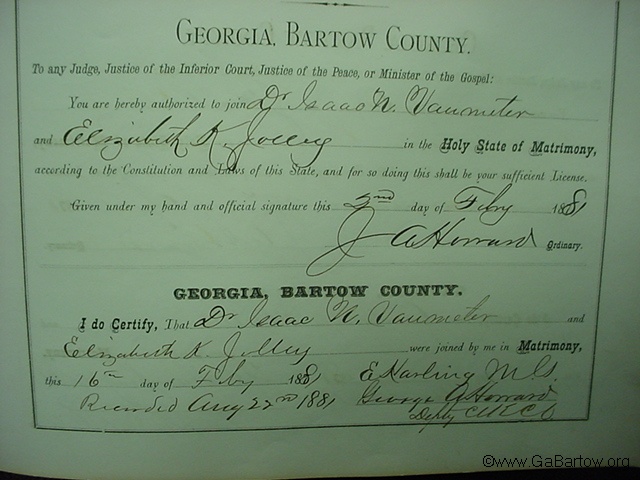 GEORGIA, BARTOW COUNTY.
To any Judge, Justice of the Inferior Court, Justice of the Peace, or Minister of the Gospel:
You are hereby authorized to join Dr Isaac N. Vanmeter
and Elizabeth K. Jolley in the Holy State of Matrimony,
according to the Constitution and Laws of this State, and for so doing this shall be your sufficient License.
Given under my hand and official signature this 2nd day of Feby 1881
J A Howard Ordinary.
GEORGIA, BARTOW COUNTY.
I do Certify, That Dr Isaac N. Vanmeter and
Elizabeth K. Jolley were joined by me in Matrimony,
this 16th day of Feby 1881 E M. G.
Recorded Aug 22nd 1881 George A Howard
Depty
©www.GaBartow.org